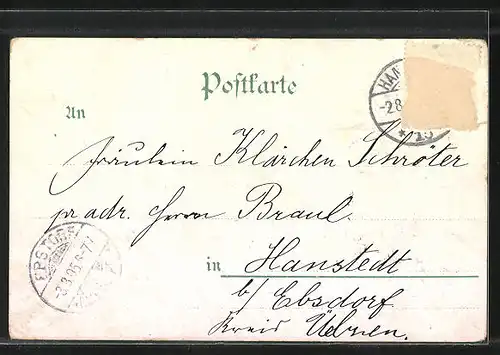 Postkarte
An
HAN
-2.8.
* 15
Fräulein Klärchen Schröter
pr adr. Herrn Braul.
in Hanstedt
b/ Ebsdorf
Kreis Uelzen.
EPSTORF
-3.3.05.6-7